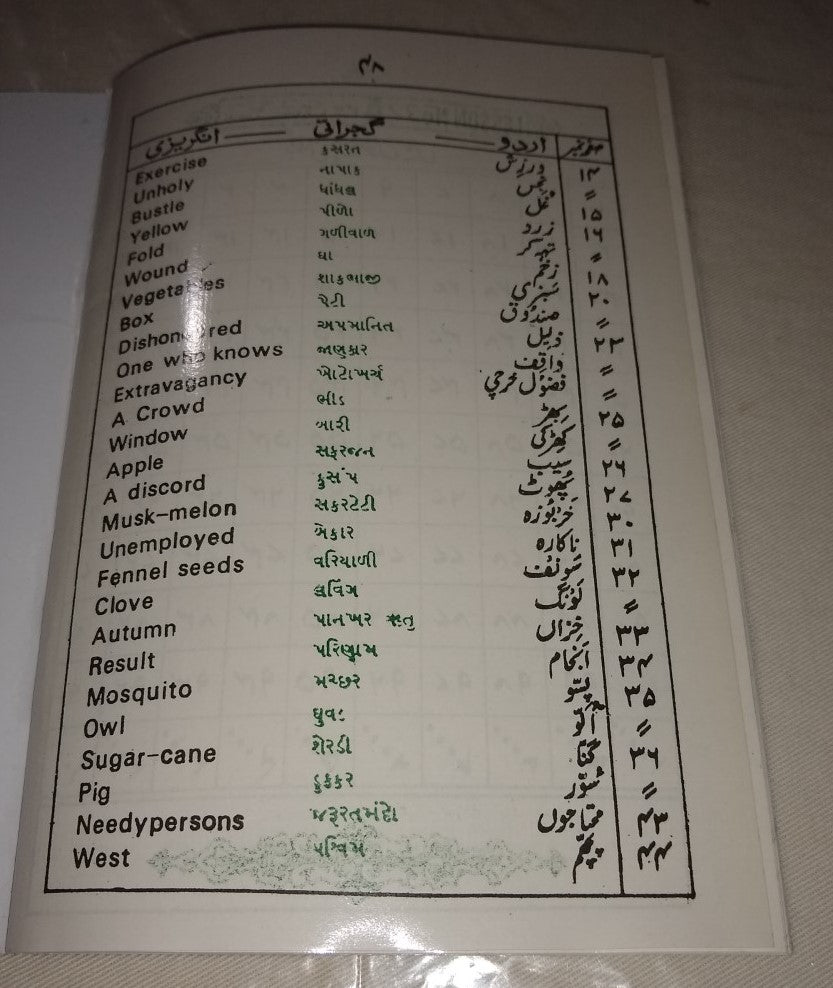 انگریزی گجراتی اردو صفحہ نمبر
Exercise કસરત ورزش ۱۳
Unholy નાપાક نجس 〃
Bustle ધાંધલ غل ۱۵
Yellow પીળો زرد ۱۶
Fold ગળીવાળ تہہ کر 〃
Wound ઘા زخم ۱۸
Vegetables શાકભાજી سبزی ۲۰
Box પેટી صندوق 〃
Dishonoured અપમાનિત ذلیل ۲۲
One who knows જાણકાર واقف 〃
Extravagancy ખોટોખર્ચ فضول خرچی 〃
A Crowd ભીડ بھیڑ ۲۵
Window બારી کھڑکی 〃
Apple સફરજન سیب ۲۶
A discord કુસંપ پھوٹ ۲۷
Musk-melon સકરટેટી خربوزہ ۳۰
Unemployed બેકાર ناکارہ ۳۱
Fennel seeds વરિયાળી سونف ۳۲
Clove લવિંગ لونگ 〃
Autumn પાનખર ઋતુ خزاں ۳۳
Result પરિણામ انجام ۳۴
Mosquito મચ્છર پسّو ۳۵
Owl ઘુવડ اُلّو 〃
Sugar-cane શેરડી گنّا ۳۶
Pig ડુક્કર سُوّر 〃
Needypersons જરૂરતમંદો محتاجوں
West પશ્ચિમ پچھم